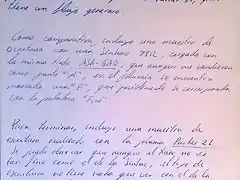 tiene un flujo generoso.
Como comparativa, incluyo una muestra de
escritura con una Sinbao 7812, cargada con
la misma tinta ASA-GAO, que aunque me vendieron
como punto "M", en el plumín se encuentra
marcado una "F", que posiblemente se corresponda
con la palabra "Fine"
Para terminar, incluyo una muestra de
escritura realizada con la pluma Parker 21
Se puede observar que aunque el trazo no es
tan fino como el de la Sinbao, el tipo de
escritura no tiene nada que ver con el de la